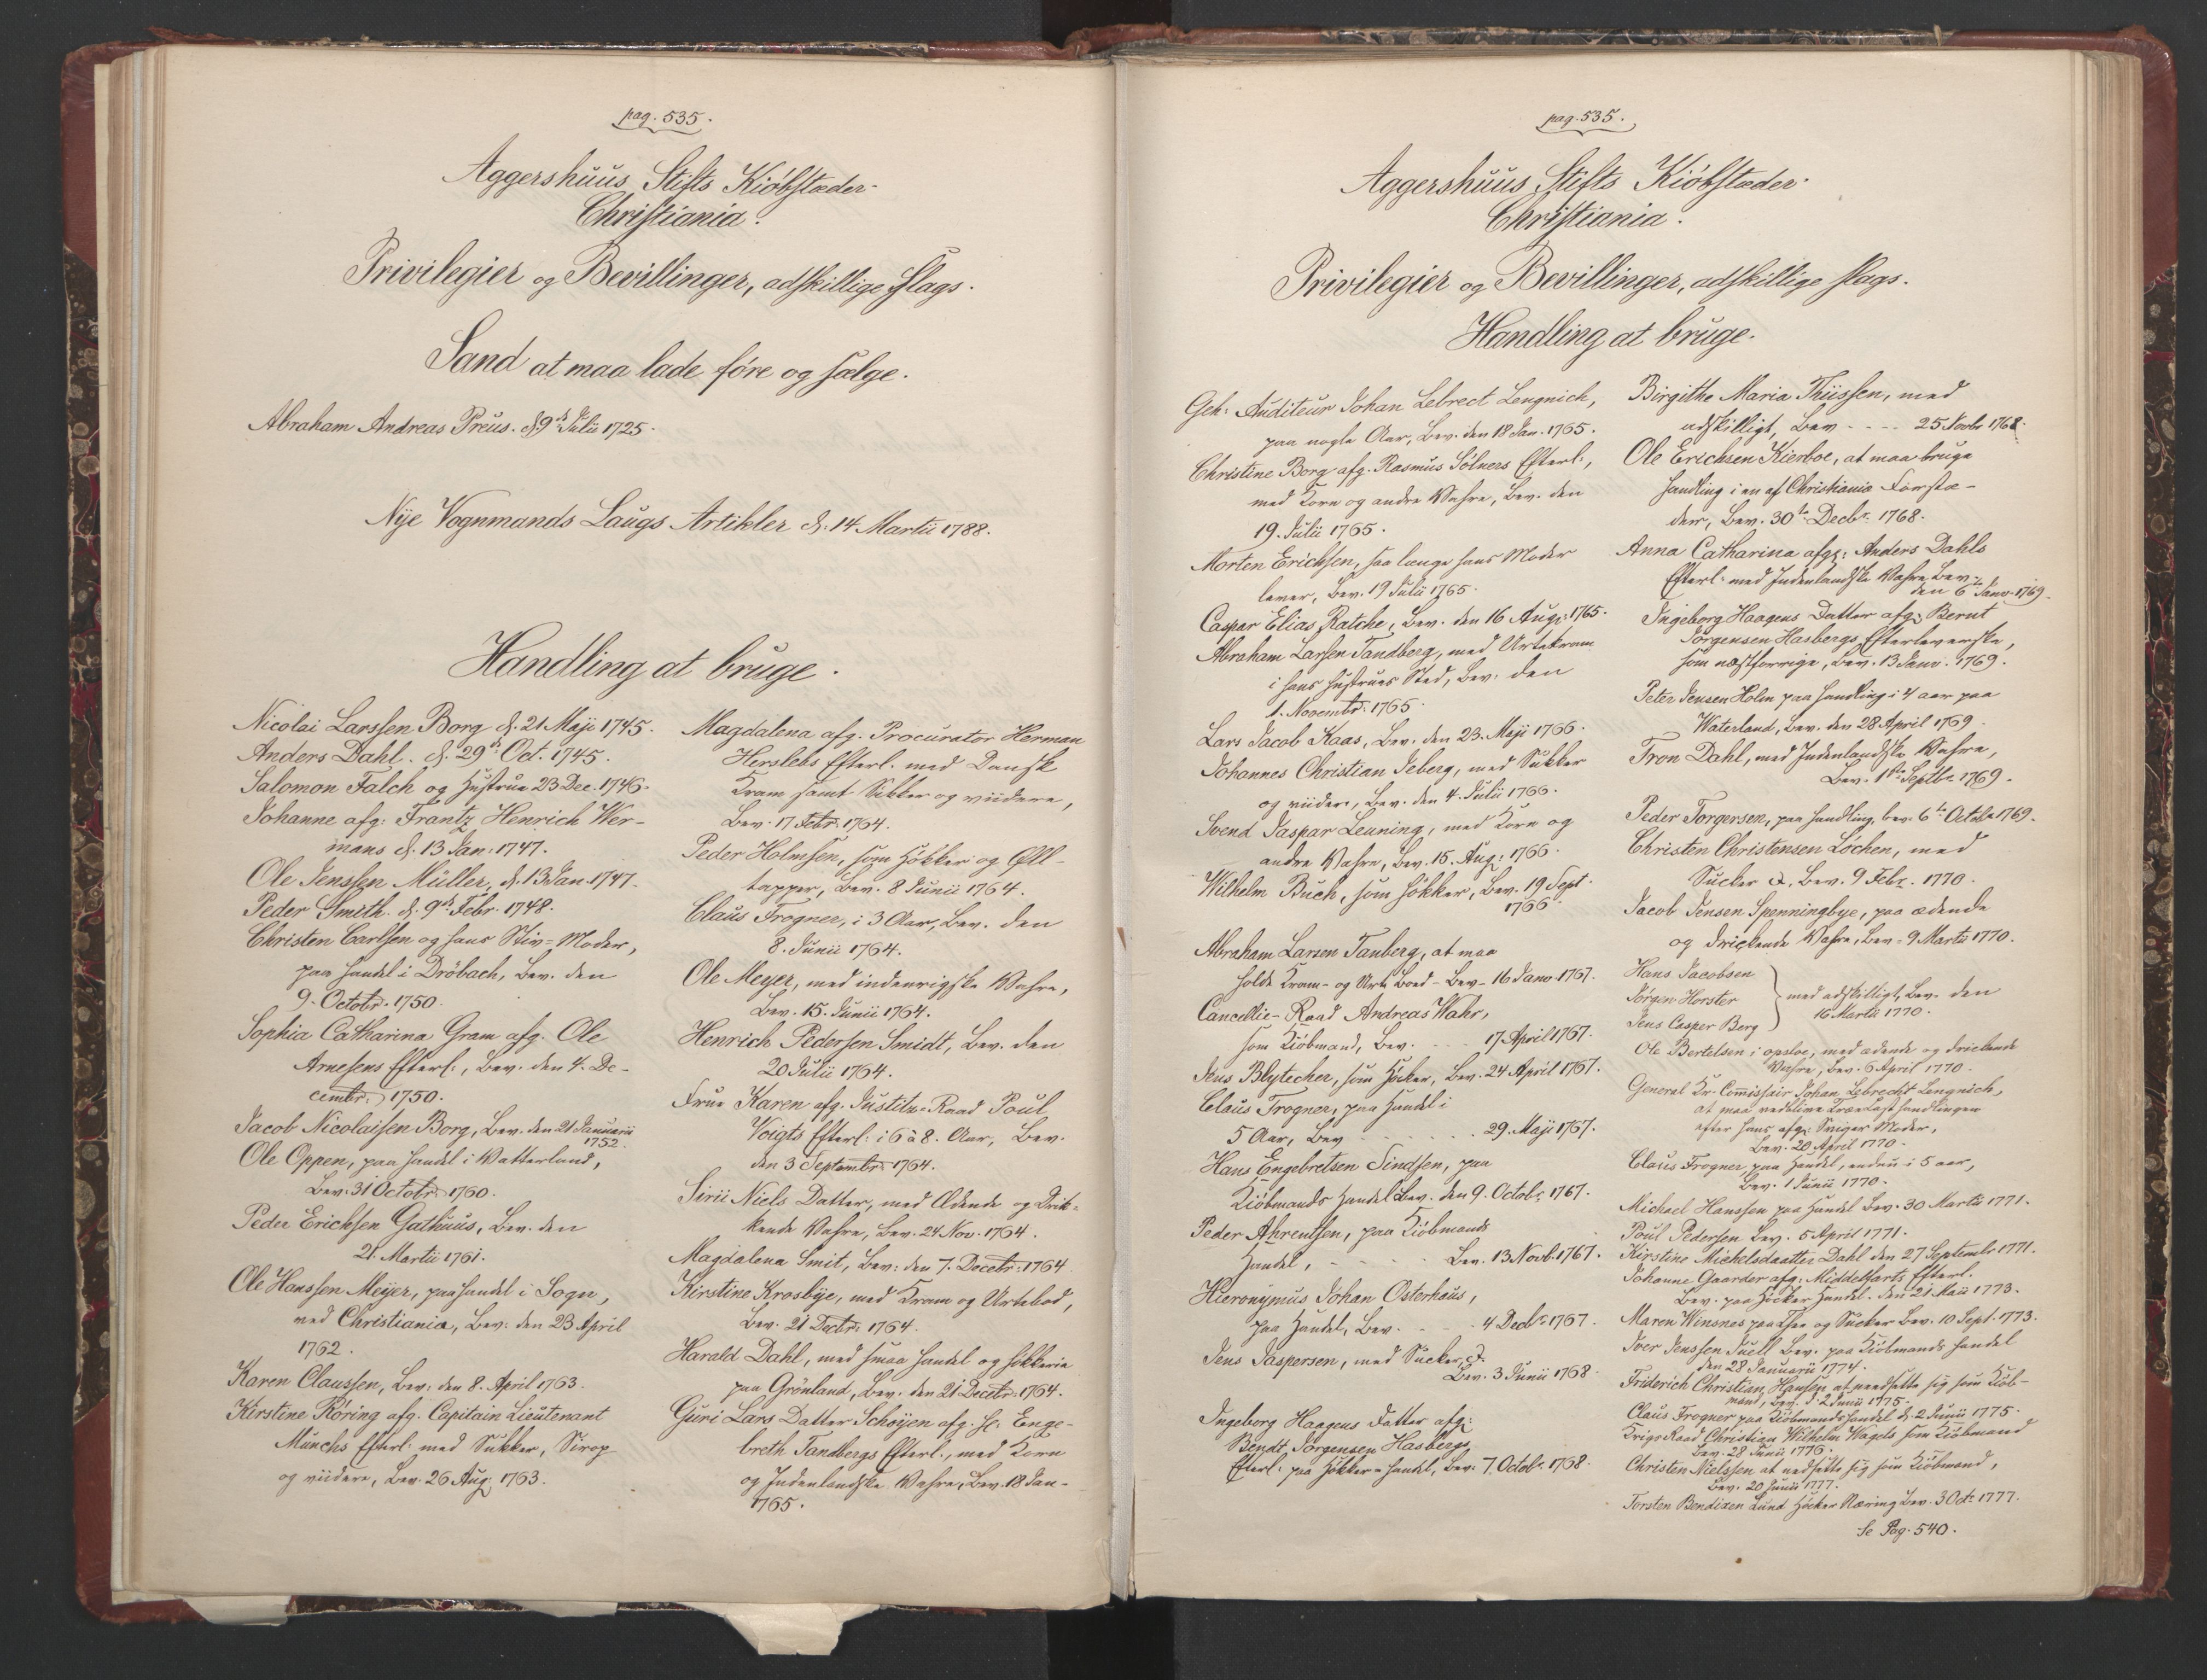 pag. 535.
Aggershuus Stifts Kiöbstæder
Christiania.
Privilegier og Bevillinger, adskillige slags.
Sand at maa lade føre og sælge.
Abraham Andreas Preus. d. 9de Julii 1725.
Nye Vognmands Laugs Artikler d. 14 Martii 1788.
Handling at bruge.
Nicolai Larssen Borg d. 21 Maji 1745.
Anders Dahl. d. 29de Oct. 1745.
Salomon Falch og Hustrue 23 Dec. 1746.
Johanne afg: Frantz Henrich Wer-
mans d. 13 Jan: 1747.
Ole Jenssen Müller, d. 13 Jan 1747.
Peder Smith. d. 9de Febr. 1748.
Christen Carlsen og hans Stiv-Moder,
paa handel i Dröbach, Bev. den
9. Octobr. 1750.
Sophia Catharina Gram afg. Ole
Arnesens Efterl:, Bev. den 4. De-
cembr: 1750.
Jacob Nicolaisen Borg, Bev. den 21 Januarii
1752.
Ole Oppen, paa handel i Watterland,
Bev: 31 Octobr: 1760.
Peder Erichsen Gathuus, Bev. den
21. Martii 1761.
Ole Hanssen Meyer, paa handel i Sogn,
ved Christiania, Bev: den 23 April
1762.
Karen Claussen, Bev: den 8. April 1763.
Kirstine Röring afg. Capitain Lieutenant
Munchs Efterl: med Sukker, Sirop
og viidere, Bev. 26 Aug: 1763.
Magdalena afg. Procurator Herman
Herslebs Efterl. med Dansk
Kram samt Sukker og viidere,
Bev. 17 Febr. 1764.
Peder Holmsen, som Høkker og Øll-
tapper, Bev. 8 Junii 1764.
Claus Frogner, i 3 Aar, Bev. den
8. Junii 1764.
Ole Meyer, med indenrigske Wahre,
Bev. 15. Junii 1764.
Henrich Pedersen Smidt, Bev. den
20 Julii 1764.
Frue Karen afg. Justitz-Raad Poul
Voigts Efterl: i 6 à 8. Aar, Bev.
den 3 Septembr: 1764.
Sirii Niels Datter, med Ædende og Drik-
kende Wahre, Bev. 24 Nov. 1764.
Magdalena Smit, Bev: den 7. Decetr: 1764.
Kirstine Krosbye, med Kram og Urtebod,
Bev. 21 Decetr: 1764.
Harald Dahl, med smaa handel og høkkerie
paa Grönland, Bev. den 21 Decetr: 1764.
Guri Lars Datter Schøyen afg. Sr. Enge-
breth Tandbergs Efterl., med Korn
og Indenlandske Wahre, Bev. 18 Jan-
1765.
pag. 535.
Aggershuus Stifts Kiöbstæder
Christiania.
Privilegier og Bevillinger, adskillige slags.
Handling at bruge.
Geh: Auditeur Johan Lebrect Lengnich,
paa nogle Aar, Bev. den 18 Jan. 1765.
Christine Borg afg. Rasmus Sölners Efterl:,
med Korn og andre Wahre, Bev. den
19. Julii 1765.
Morten Erichsen, saa længe hans Moder
lever, Bev. 19 Julii 1765.
Caspar Elias Ratche, Bev. den 16 Aug: 1765.
Abraham Larsen Tandberg, med Urtekram
i hans hustrues Sted, Bev: den
1. Novembr: 1765.
Lars Jacob Kaas, Bev. den 23. Maji 1766.
Johannes Christian Seberg, med Sukker
og viidere, Bev. den 4. Julii 1766.
Svend Jaspar Leuning, med Korn og
andre Wahre, Bev. 15. Aug: 1766.
Wilhelm Buch, som høkker, Bev. 19 Sept.
1766.
Abraham Larsen Tanberg, at maa
holde Kram- og Urte Boed - Bev. 16 Janv. 1767.
Cancellie-Raad Andreas Wahr,
som Kiöbmand, Bev. - - - 17 April 1767.
Jens Blytecher, som Høcker, Bev. 24 April 1767.
Claus Frogner, paa Handel i
5 Aar, Bev - - - - - - 29. Maji 1767.
Hans Engebretsen Sindsen, paa
Kiöbmands Handel Bev. den 9. Octobr 1767.
Peder Ahrentsen, paa Kiöbmands
Handel, - - - - Bev. 13 Novb. 1767.
Hieronymus Johan Osterhaus,
paa Handel, Bev. - - - 4 Decbr 1767.
Jens Jaspersen, med Sucker &.
Bev. 3 Junii 1768.
Ingeborg Haagens Datter afg:
Bendt Jörgensen Hasbergs
Efterl: paa Høkker-handel, Bev: 7. Octobr. 1768.
Birgithe Maria Thiissen, med
adskilligt, Bev - - - - 25. Novbr 1768.
Ole Erichsen Kierboe, at maa bruge
handling i en af Christiania Forstæ-
der, Bev. 30te Decbr. 1768.
Anna Catharina afg: Anders Dahls
Efterl: med Indenlandske Wahre, Bev:
den 6te Janv. 1769.
Ingeborg Haagens Datter afg: Bernt
Jörgensen Hasbergs Efterleverske,
som næstforrige, Bev. 13 Janv. 1769.
Peter Jensen Holm paa handling i 4 aar paa
Waterland, Bev. den 28 April 1769.
Tron Dahl, med Indenlandske Wahre,
Bev. 1te Septbr. 1769.
Peder Torgersen, paa handling, bev. 6te Octobr 1769.
Christen Christensen Löchen, med
Sucker &, Bev. 9 Febr. 1770.
Jacob Jensen Spenningbye, paa ædende
og drickende Wahre, Bev. 9 Martii 1770.
Hans Jacobsen
Jörgen Horster
Jens Casper Berg
med adskilligt, Bev. den
16 Martii 1770.
Ole Bertelsen i opsloe, med ædende og drickende
Wahre, Bev. 6 April 1770.
General Kr. Commissair Johan Lebrecht Lengnich,
at maa vedblive Trælast handlingen
efter hans afg: Sviger Moder,
Bev. 20 April 1770.
Claus Frogner paa Handel, endnu i 5 aar,
Bev. 1 Junii 1770.
Michael Hanssen paa Handel Bev. 30 Martii 1771.
Poul Pedersen Bev. 5 April 1771.
Kirstine Michelsdaatter Dahl den 27 Septembr 1771.
Johanne Gaarder afg: Middelfarts Efterl.
Bev. paa Høcker Handel. den 21 Maii 1773.
Maren Winsnes paa Thee og Sucker Bev. 10 Sept. 1773.
Iver Jenssen Juell Bev. paa Kiöbmands handel
den 28 Januarii 1774.
Friderich Christian Hansen at needsætte sig som Kiöb-
mand, Bev. d. 2 Junii 1775.
Claus Frogner paa Kiöbmandshandel d. 2 Junii 1775.
Krigs Raad Christian Wilhelm Wagels som Kiöbmand
Bev. 28 Junii 1776.
Christen Nielssen at nedsætte sig som Kiöbmand,
Bev. 20 Junii 1777.
Torsten Bendixen Lund Høcker Næring Bev. 3 Oct. 1777.
Se Pag. 540.